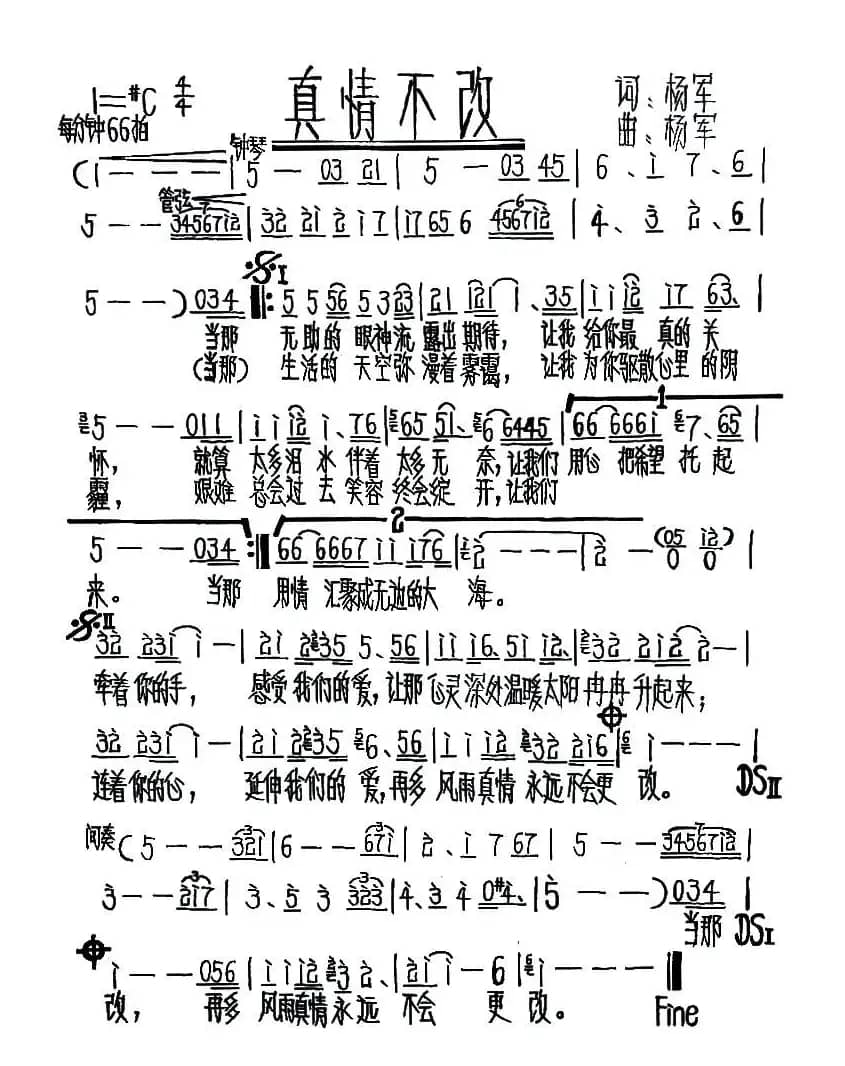 真情不改
1=#C 4/4
词：杨军
每分钟66拍
曲：杨军
钟琴
(1 — — — | 5 — 03 21 | 5 — 03 45 | 6、 i 7、 6 |
管弦
5 — — 345671̇2̇ | 3̇2̇ 2̇1̇ 2̇ i 7 | i7 65 6 45671̇2̇ | 4̇、 3̇ 2̇、 6 |
5 — — ) 034 ‖: 5 5 56 5 3 23 | 21 121 1、 35 | i i i2̇ i7 63、 |
当那 无助的 眼神流 露出期待， 让我 给你最 真的 关
(当那) 生活的 天空弥 漫着雾霭， 让我 为你驱散心里 的阴
1
5 — — 011 | i i i2̇ i、 76 | 65 51、 6 6445 | 66 6661̇ 7、 65 |
怀， 就算 太多泪 水 伴着 太多无 奈，让我们 用心 把希望 托 起
霾， 艰难 总会过 去 笑容 终会绽 开，让我们
2
5 — — 034 :‖ 66 6667 i i i76 | 2̇ — — — | 2̇ — (05/0 i2̇/0) |
来。 当那 用情 汇聚成无边的大 海。
II
3̇2̇ 2̇3̇1̇ i — | 2̇1̇ 2̇ 35 5、 56 | i i i6、 5i i2̇、 | 3̇2̇ 2̇1̇2̇ 2̇ — |
牵着 你的手， 感受 我们的 爱，让那 心灵深处温暖太阳 冉冉 升起来；
3̇2̇ 2̇3̇1̇ i — | 2̇1̇ 2̇ 35 6、 56 | i i i i2̇ 3̇2̇ 2̇1̇6 | i — — — |
连着 你的心， 延伸我们的 爱，再多 风雨真情 永远 不会更 改。 DSII
间奏 (5 — — 3̇2̇1̇ | 6 — — 671̇ | 2̇、 i 7 67 | 5 — — 345671̇2̇ |
3̇ — — 2̇1̇7 | 3̇、 5̇ 3̇ 3̇2̇3̇ | 4̇、 3̇ 4̇ 0#4̇、 | 5̇ — — — ) 034 |
当那 DSI
i — — 056 | i i i2̇ 3̇ 2̇、 | 2̇1̇ i — 6 | i — — — ‖
改， 再多 风雨真情永 远 不 会 更 改。 Fine